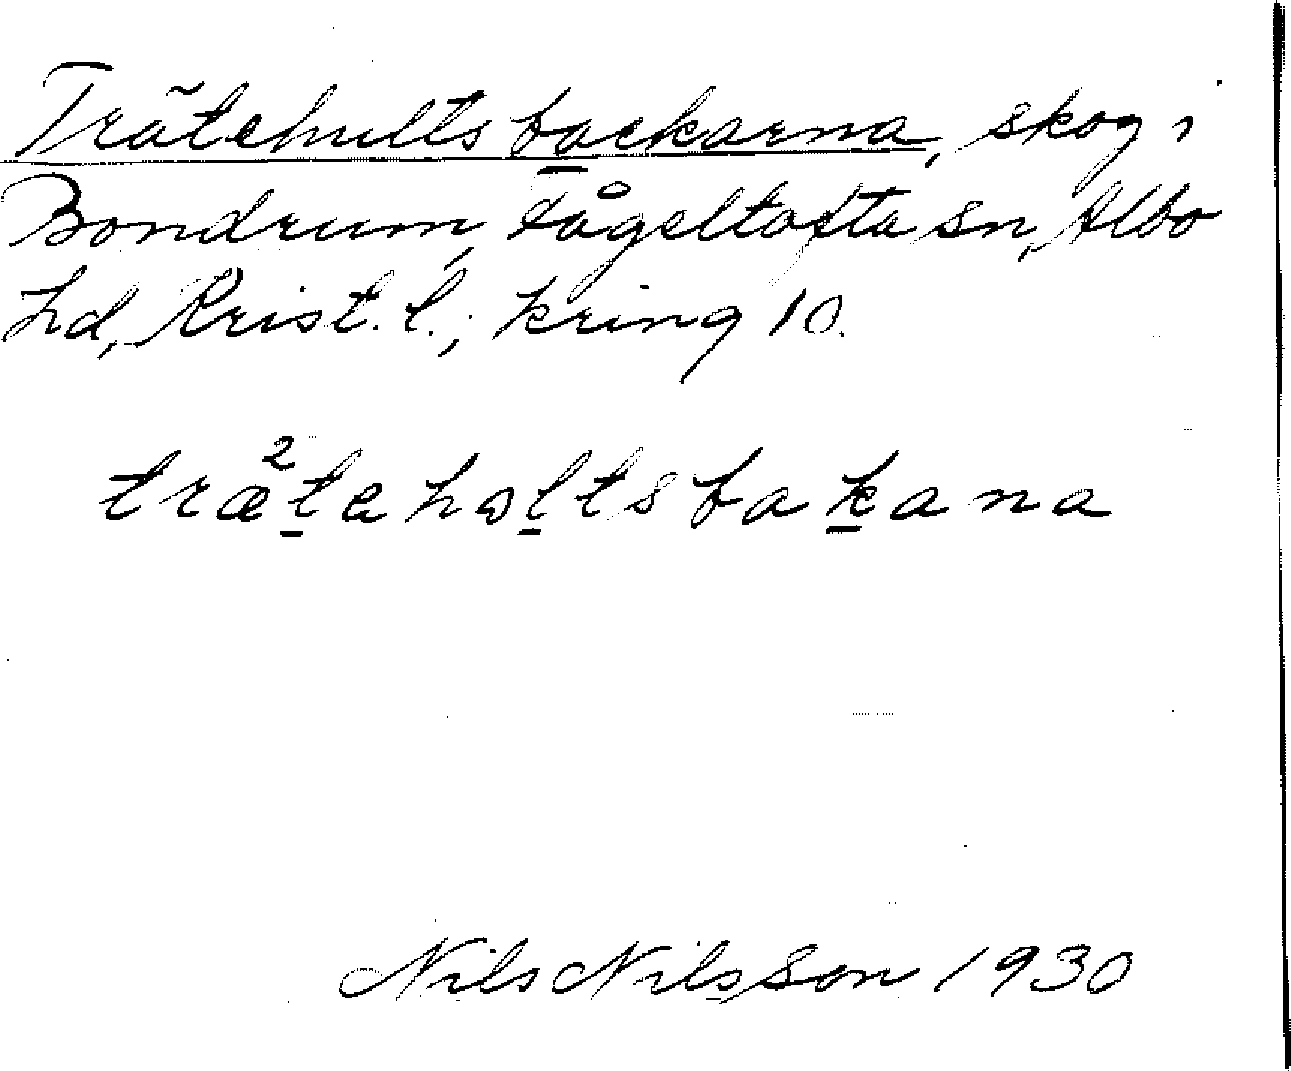 Trätehultsbackarna, skog i
Bondrum, Fågeltofta sn, Albo
hd, Krist. l.; kring 10.
træ²teholtsbakana
Nils Nilsson 1930